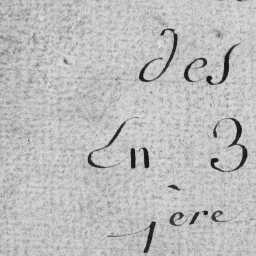 des
En 3
1ère